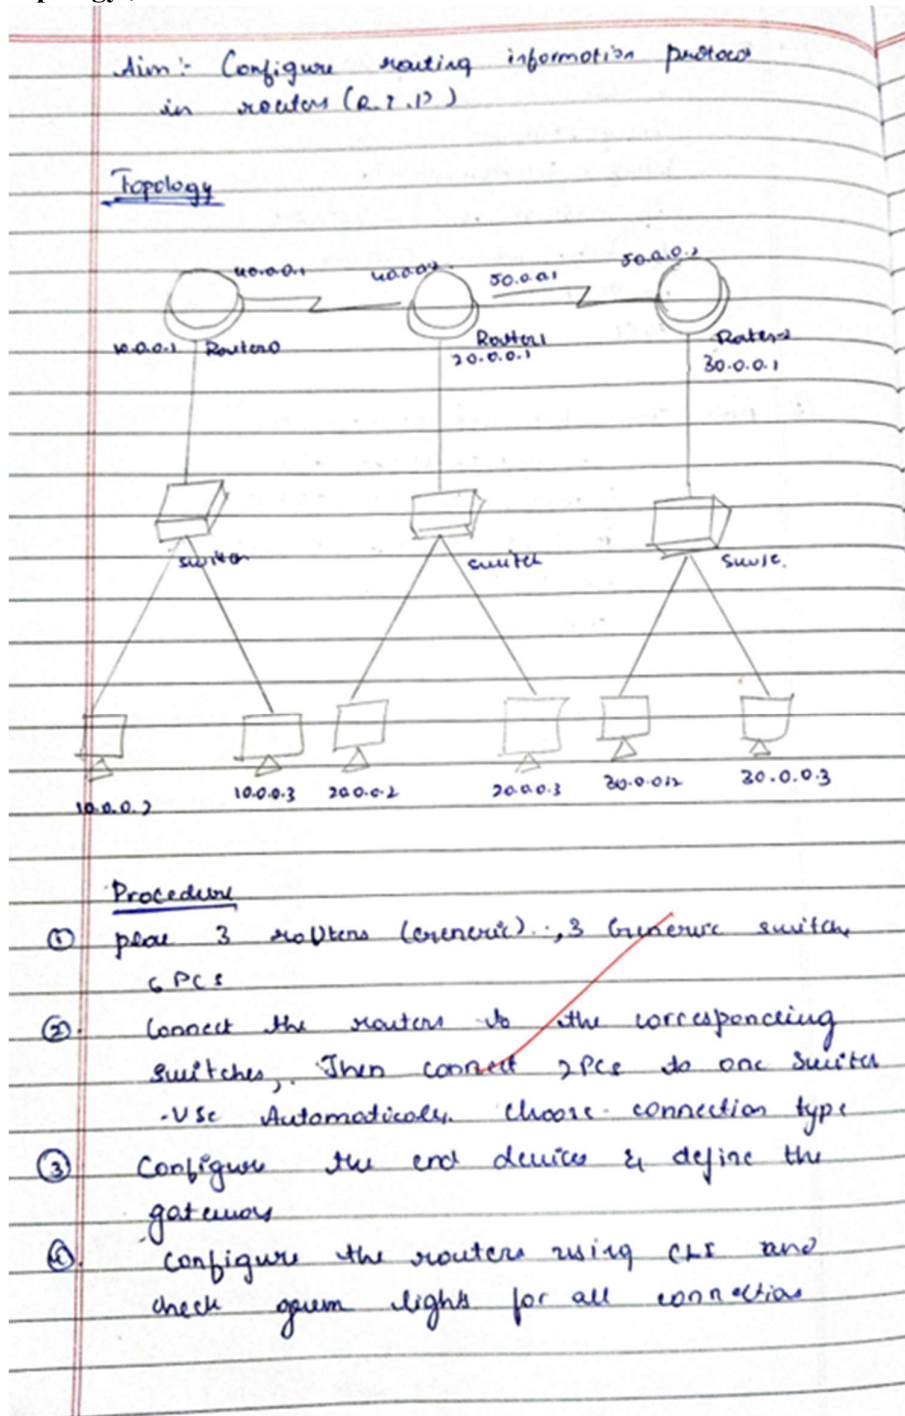 Aim:- Configure routing information protocol
in routers (R.I.P)
Topology
40.0.0.1
40.0.0.2
50.0.0.1
50.0.0.2
10.0.0.1 Router0
Router1
20.0.0.1
Router2
30.0.0.1
switch
switch
10.0.0.2
10.0.0.3
20.0.0.2
20.0.0.3
30.0.0.2
30.0.0.3
Procedure
① 3 routers (Generic) , 3 Generic switch,
6 PCs
② Connect the routers to the corresponding
switches, Then connect 2 PCs to one switch
-Use Automatically choose connection type
③ Configure the end devices & define the
gateways
④ Configure the routers using CLI and
check green lights for all connection